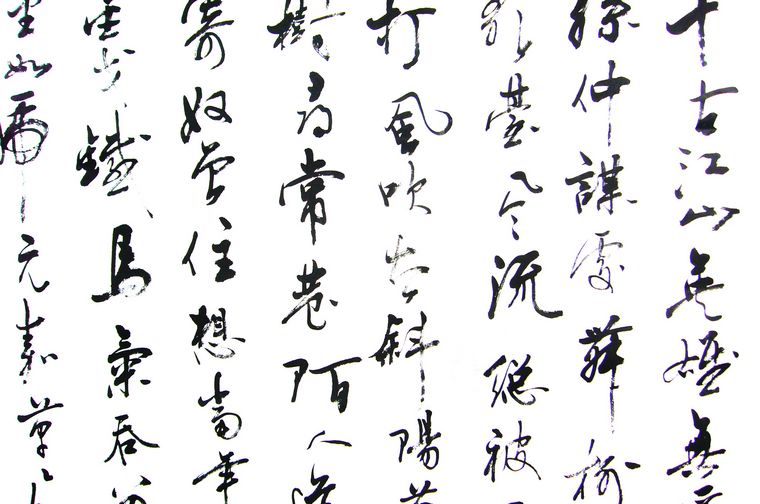 千古江山英雄無
孫仲謀處舞榭
歌臺風流總被
打風吹去斜陽草
樹尋常巷陌人道
寄奴曾住想當年
金戈鐵馬氣吞萬
里如虎元嘉草